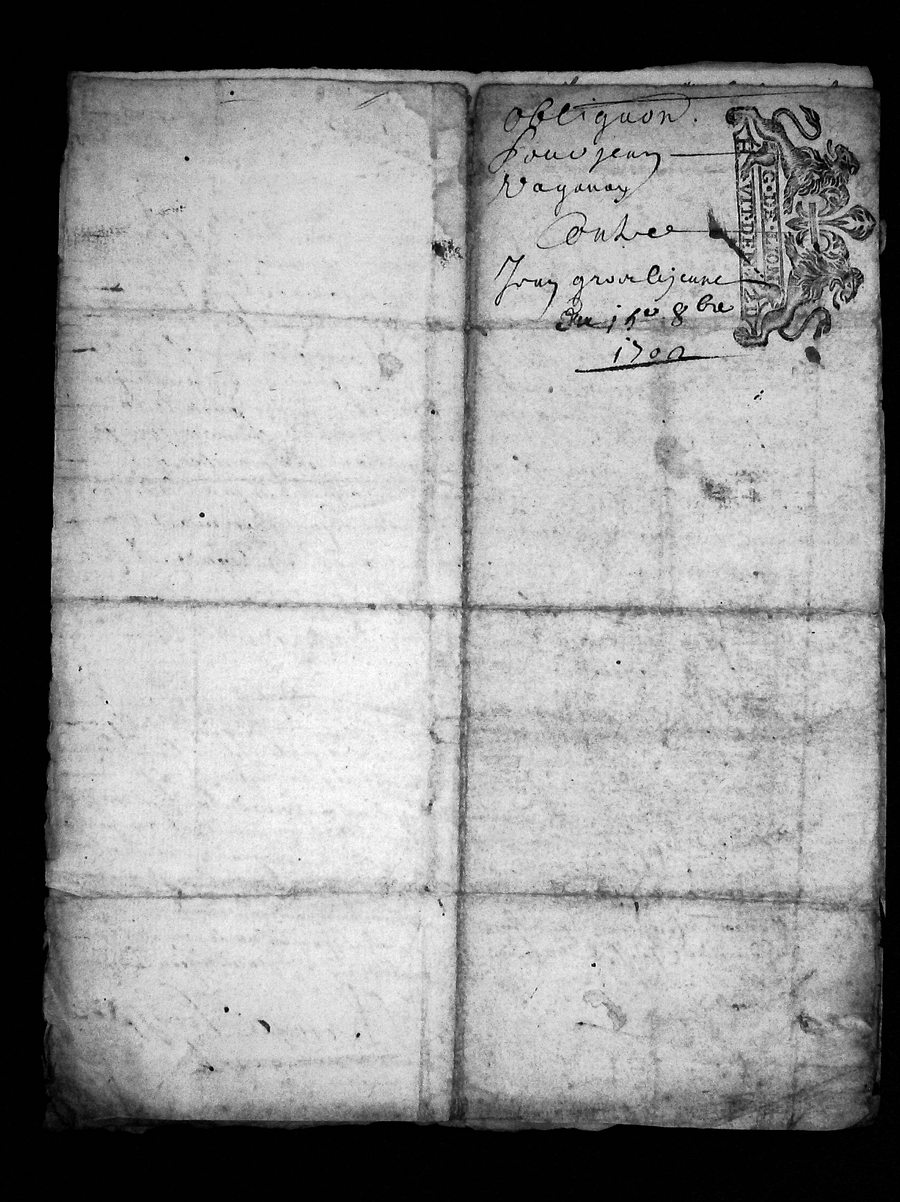 obligaon.
Pour jean
Vaganay
Contre
Jean gros lejeune
Du 15e 8bre
1700
G. DE LION
HUIT DEN